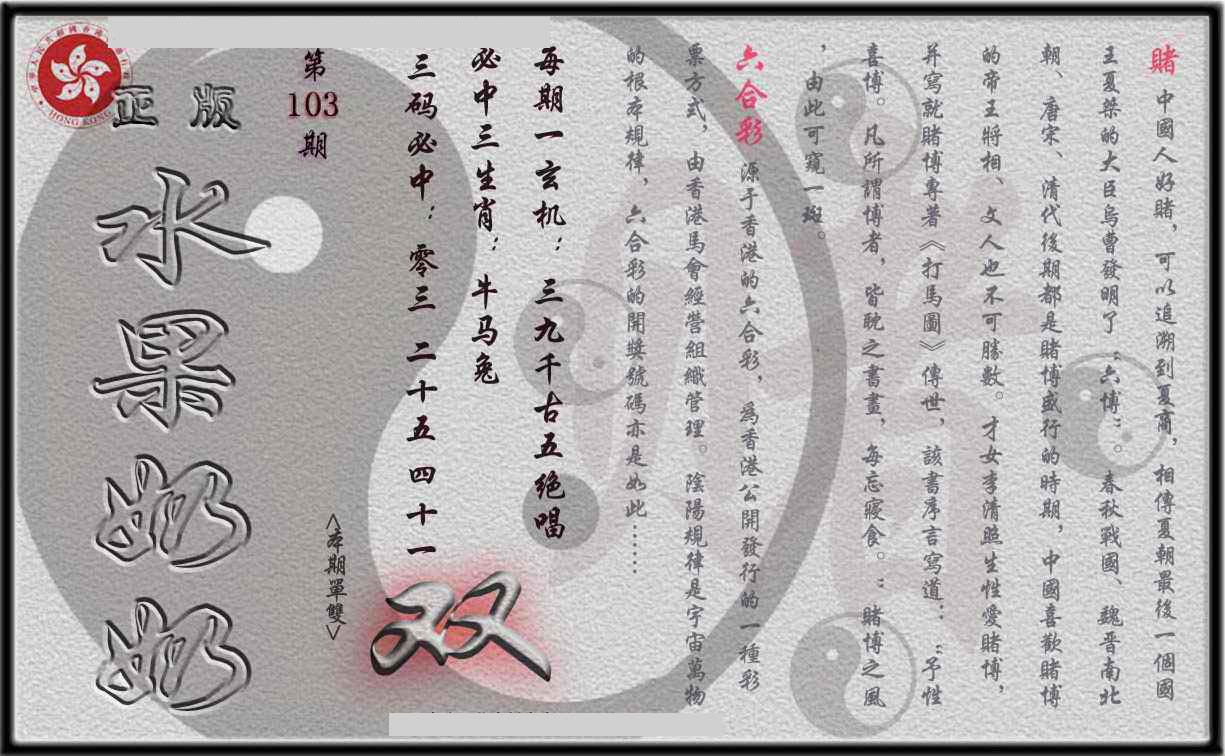 賭 中國人好賭，可以追溯到夏商，相傳夏朝最後一個國
王夏桀的大臣烏曹發明了“六博”。春秋戰國、魏晉南北
朝、唐宋、清代後期都是賭博盛行的時期，中國喜歡賭博
的帝王將相、文人也不可勝數。才女李清照生性愛賭博，
并寫就賭博專著《打馬圖》傳世，該書序言寫道：“予性
喜博。凡所謂博者，皆耽之晝，每忘寢食。”賭博之風
，由此可窺一斑。
六合彩 源于香港的六合彩，為香港公開發行的一種彩
票方式，由香港馬會經營組織管理。陰陽規律是宇宙萬物
的根本規律，六合彩的開獎號碼亦是如此……
每期一玄机：三九千古五绝唱
必中三生肖：牛马兔
三码必中：零三 二十五 四十一
双
<本期單雙>
第
103
期
正版
水果奶奶
HONG KONG